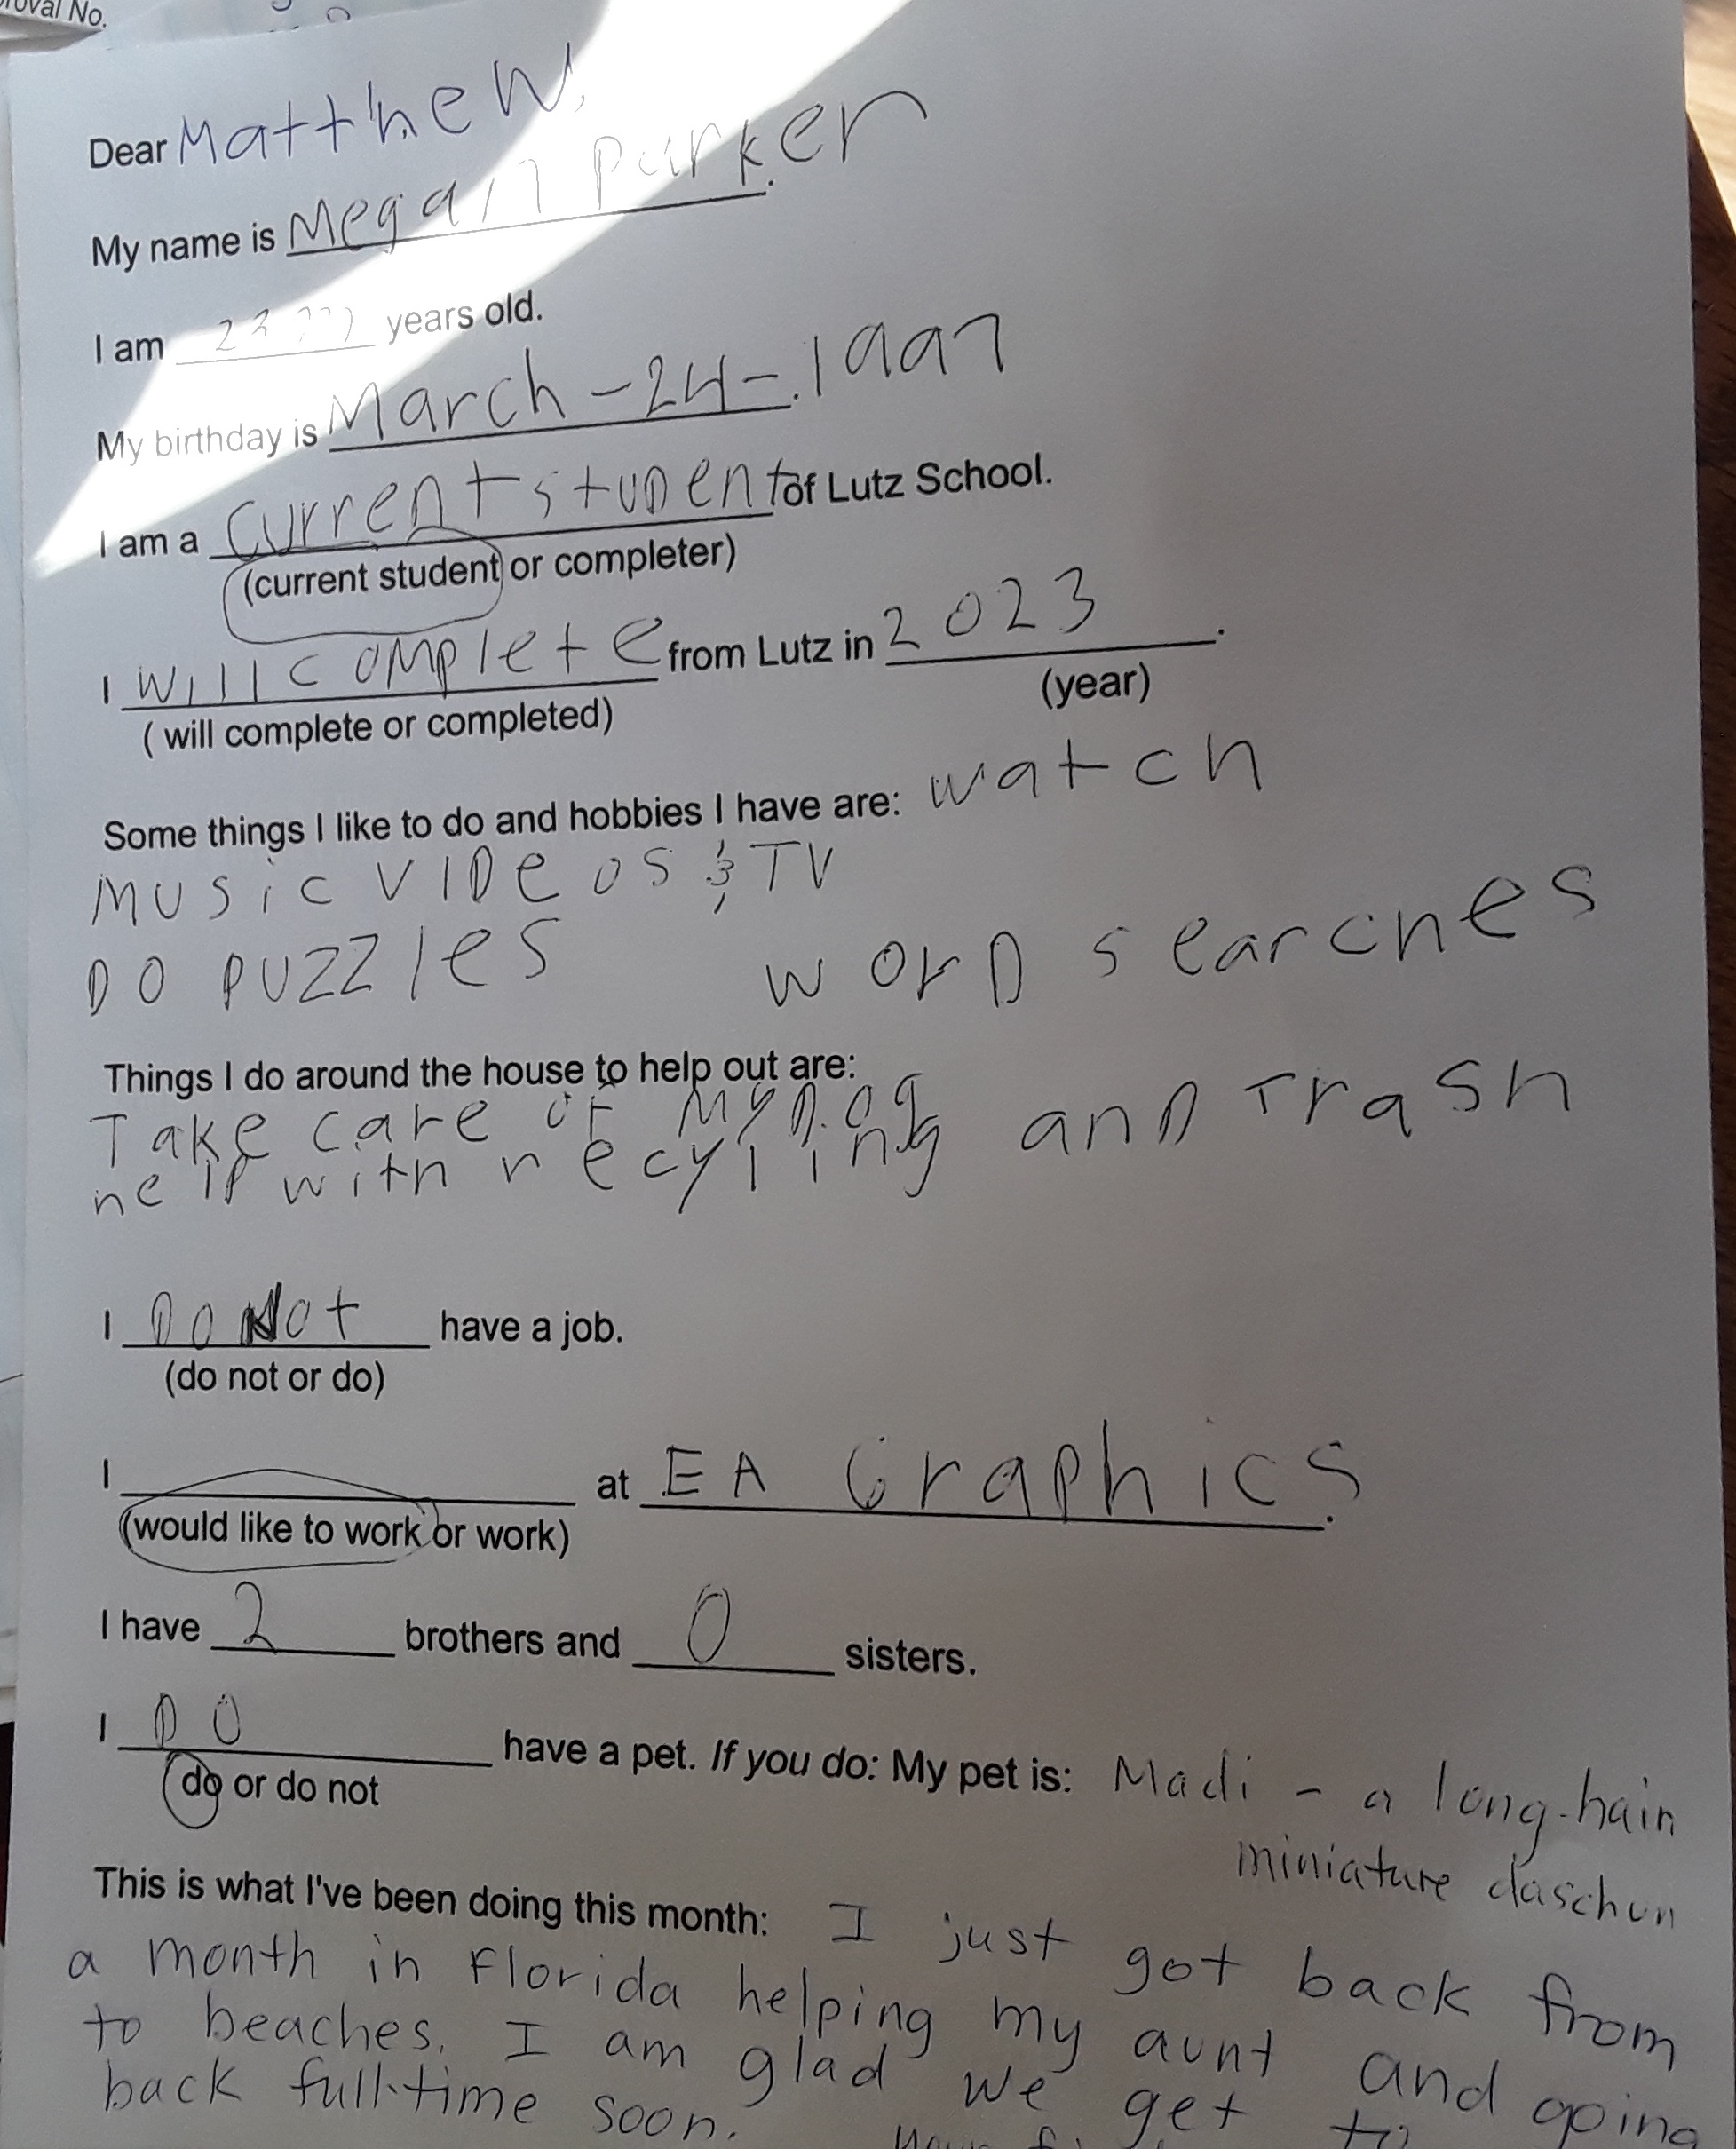 roval No.
Dear Matthew,
My name is Megan Parker.
I am 23 years old.
My birthday is March-24-1997.
I am a current student of Lutz School.
(current student or completer)
I will complete from Lutz in 2023.
( will complete or completed)
(year)
Some things I like to do and hobbies I have are: watch
music videos & TV
Do puzzles word searches
Things I do around the house to help out are:
Take care of my Dog
help with recyling and Trash
I Do Not have a job.
(do not or do)
I at EA Graphics.
(would like to work or work)
I have 2 brothers and 0 sisters.
I DO have a pet. If you do: My pet is: Madi - a long-hair
do or do not
miniature daschun
This is what I've been doing this month: I just got back from
a month in Florida helping my aunt and going
to beaches. I am glad we get to
back full-time soon.